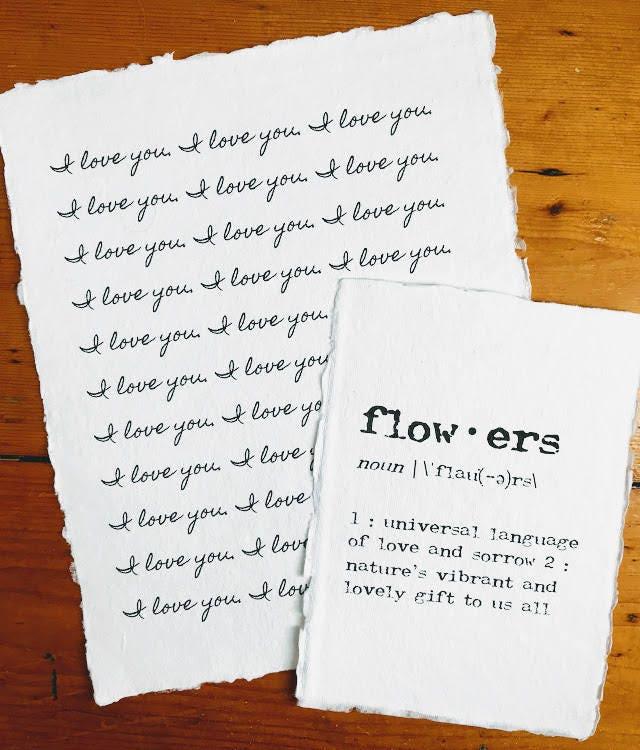 I love you. I love you. I love you.
I love you. I love you. I love you.
I love you. I love you. I love you.
I love you. I love you. I love you.
I love you. I love you.
I love you. I love you
I love you. I love yo
I love you. I love y
I love you. I love
I love you. I love
I love you. I lov
flow·ers
noun | \ˈflau̇(-ə)rs\
1 : universal language
of love and sorrow 2 :
nature's vibrant and
lovely gift to us all